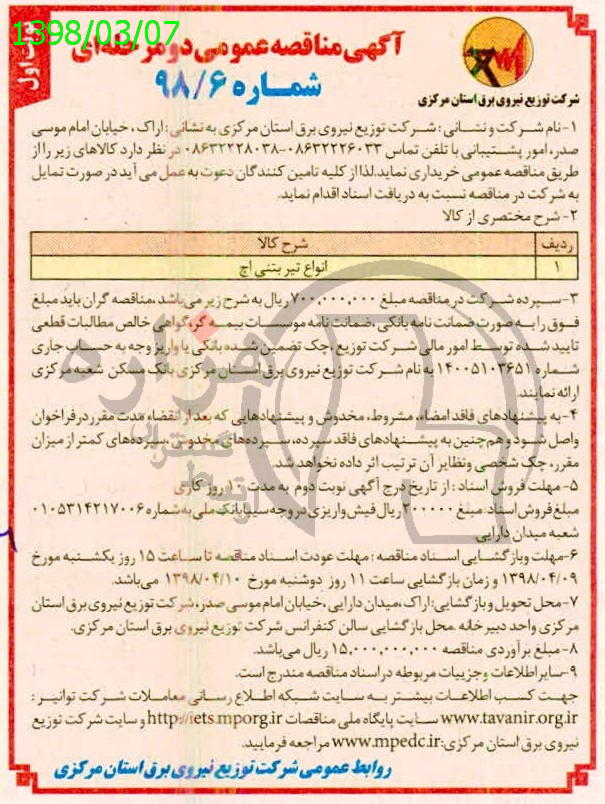 1398/03/07
نوبت اول
آگهی مناقصه عمومی دو مرحله‌ای
شماره ۹۸/۶
شرکت توزیع نیروی برق استان مرکزی
۱-نام شرکت و نشانی : شرکت توزیع نیروی برق استان مرکزی به نشانی : اراک ، خیابان امام موسی
صدر، امور پشتیبانی با تلفن تماس ۰۸۶۳۲۲۲۶۰۳۳-۰۸۶۳۲۲۲۸۰۳۸ در نظر دارد کالاهای زیر را از
طریق مناقصه عمومی خریداری نماید.لذا از کلیه تامین کنندگان دعوت به عمل می آید در صورت تمایل
به شرکت در مناقصه نسبت به دریافت اسناد اقدام نماید.
۲- شرح مختصری از کالا
ردیف شرح کالا
۱ انواع تیر بتنی اچ
۳-سپرده شرکت در مناقصه مبلغ ۷۰۰,۰۰۰,۰۰۰ ریال به شرح زیر می‌باشد ،مناقصه گران باید مبلغ
فوق را به صورت ضمانت نامه بانکی ،ضمانت نامه موسسات بیمه گر،گواهی خالص مطالبات قطعی
تایید شده توسط امور مالی شرکت توزیع ،چک تضمین شده بانکی یا واریز وجه به حساب جاری
شماره ۱۴۰۰۵۱۰۳۶۵۱ به نام شرکت توزیع نیروی برق استان مرکزی بانک مسکن شعبه مرکزی
ارائه نمایند.
۴- به پیشنهادهای فاقد امضاء، مشروط ، مخدوش و پیشنهادهایی که بعد از انقضاء مدت مقرر در فراخوان
واصل شود و هم چنین به پیشنهادهای فاقد سپرده، سپرده‌های مخدوش ،سپرده‌های کمتر از میزان
مقرر، چک شخصی ونظایر آن ترتیب اثر داده نخواهد شد.
۵- مهلت فروش اسناد : از تاریخ درج آگهی نوبت دوم به مدت ۱۰ روز کاری
مبلغ فروش اسناد: مبلغ ۲۰۰۰۰۰ ریال فیش واریزی در وجه سیبا بانک ملی به شماره ۰۱۰۵۳۱۴۲۱۷۰۰۶
شعبه میدان دارایی
۶-مهلت وبازگشایی اسناد مناقصه : مهلت عودت اسناد مناقصه تا ساعت ۱۵ روز یکشنبه مورخ
۱۳۹۸/۰۴/۰۹ و زمان بازگشایی ساعت ۱۱ روز دوشنبه مورخ ۱۳۹۸/۰۴/۱۰ می‌باشد.
۷-محل تحویل و بازگشایی:اراک ،میدان دارایی ،خیابان امام موسی صدر، شرکت توزیع نیروی برق استان
مرکزی واحد دبیرخانه .محل بازگشایی سالن کنفرانس شرکت توزیع نیروی برق استان مرکزی.
۸-مبلغ برآوردی مناقصه ۱۵,۰۰۰,۰۰۰,۰۰۰ ریال می‌باشد.
۹-سایر اطلاعات وجزییات مربوطه در اسناد مناقصه مندرج است.
جهت کسب اطلاعات بیشتر به سایت شبکه اطلاع رسانی معاملات شرکت توانیر :
www.tavanir.org.ir سایت پایگاه ملی مناقصات http://iets.mporg.ir و سایت شرکت توزیع
نیروی برق استان مرکزی:www.mpedc.ir مراجعه فرمایید.
روابط عمومی شرکت توزیع نیروی برق استان مرکزی